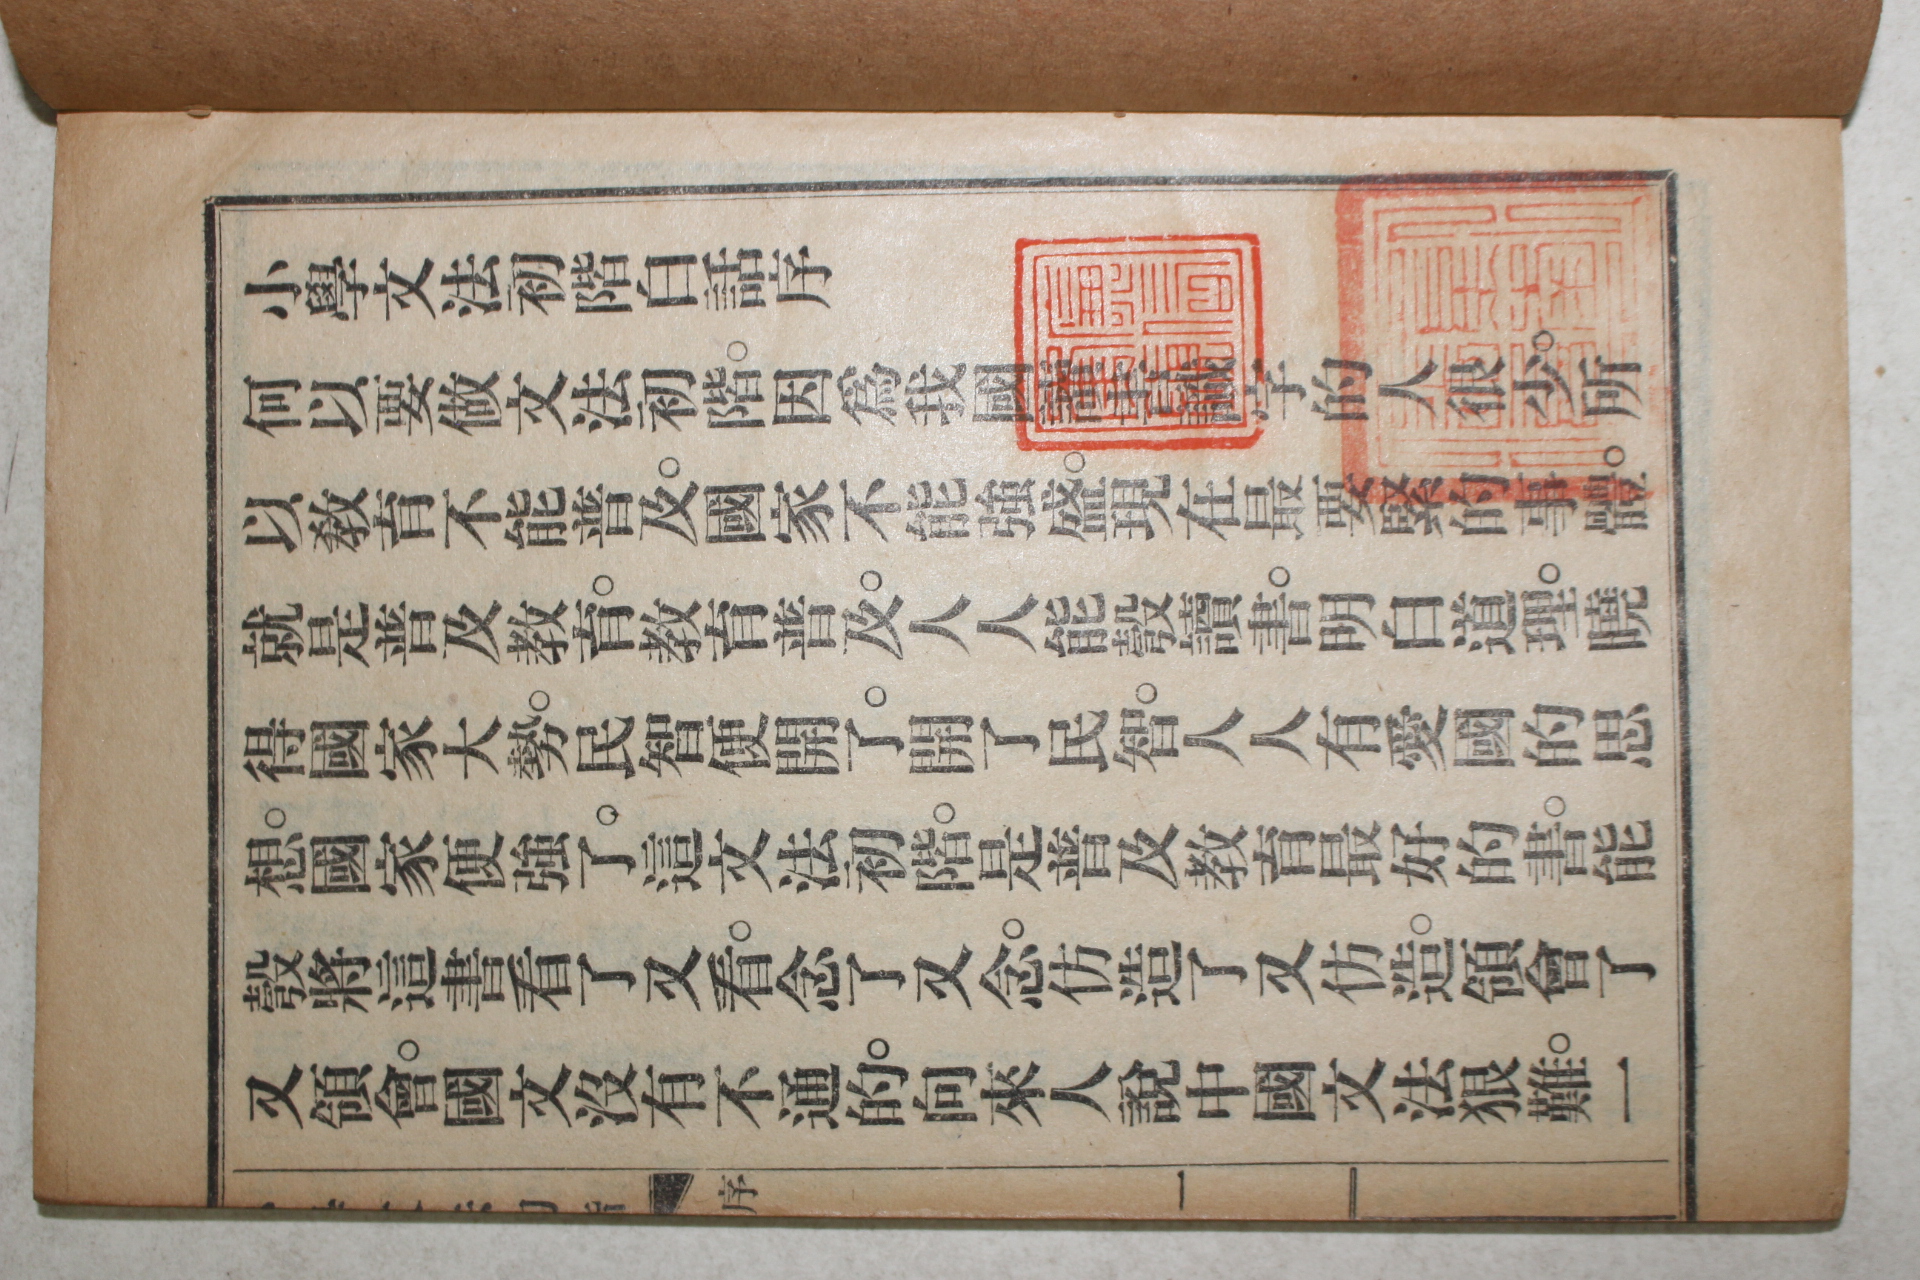 小學文法初階白話序
何以要做文法初階。因爲我國讀書識字的人很少。所
以教育不能普及。國家不能強盛。現在最要緊的事體。
就是普及教育。教育普及。人人能彀讀書明白道理。曉
得國家大勢。民智便開了。開了民智。人人有愛國的思
想。國家便強了。這文法初階。是普及教育最好的書。能
彀將這書看了又看。念了又念。仿造了又仿造。領會了
又領會。國文沒有不通的。向來人說中國文法狠難。一
序 一